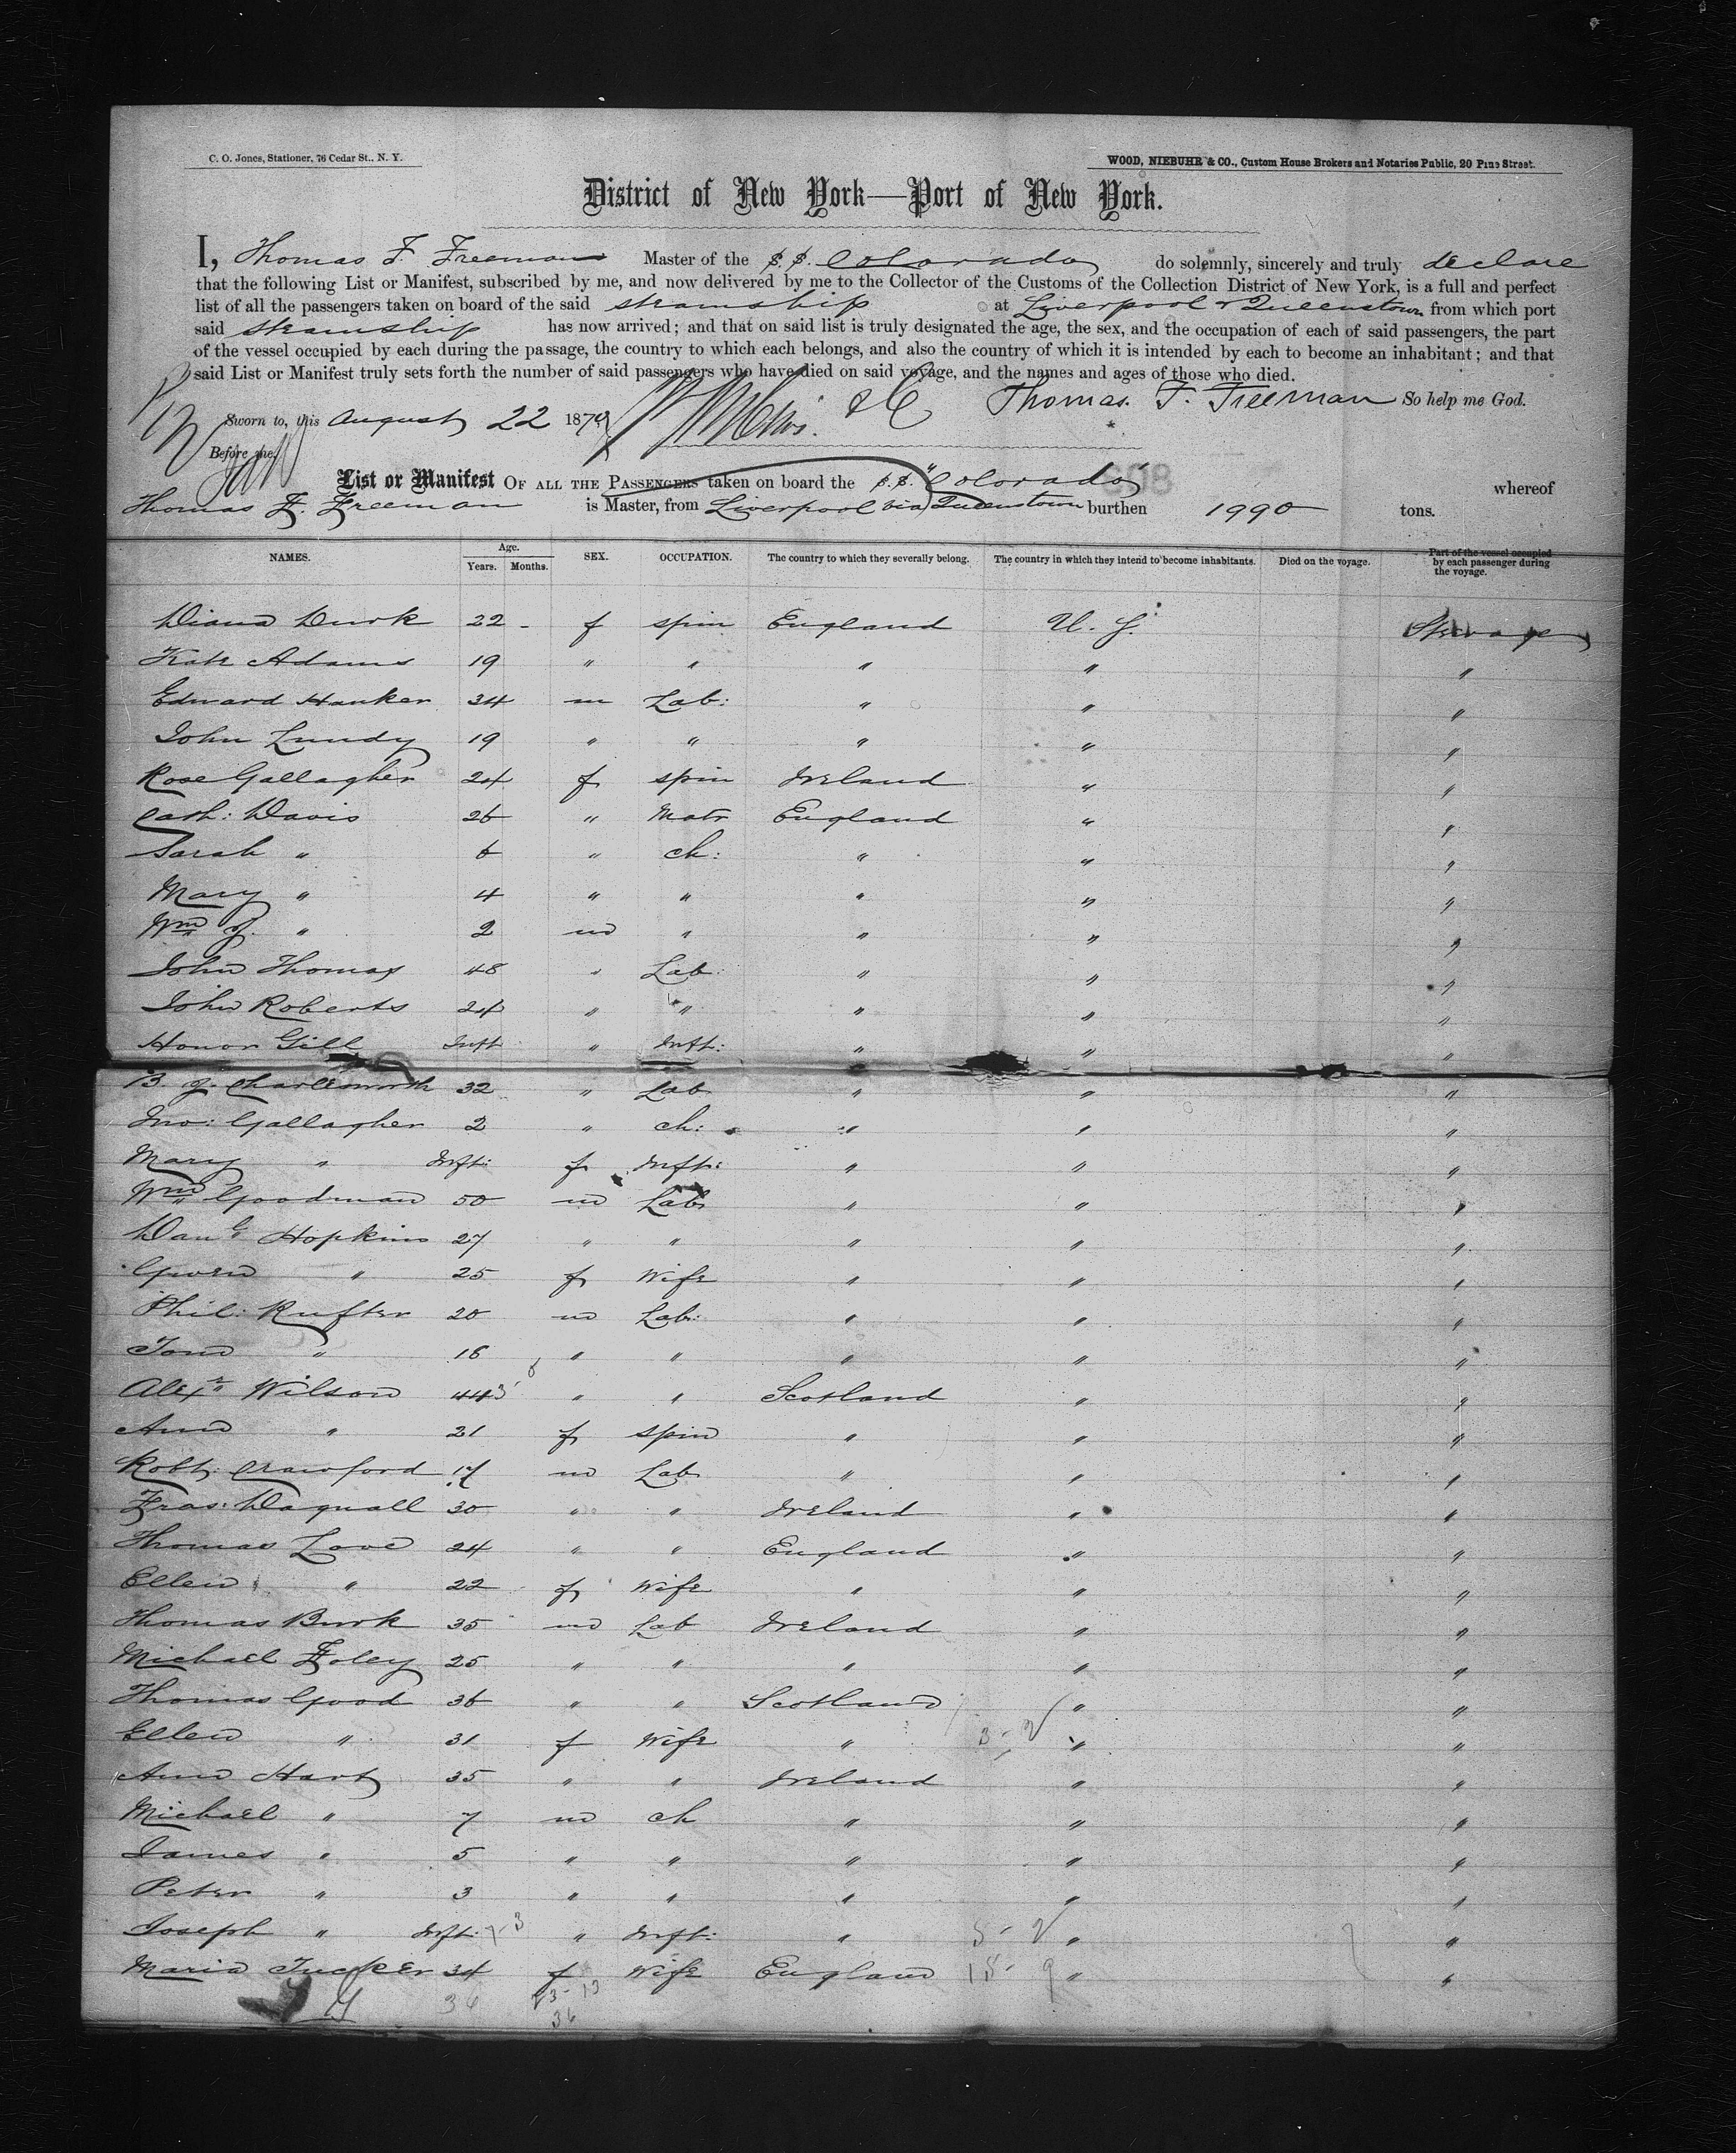 C. O. Jones, Stationer, 76 Cedar St., N. Y.
WOOD, NIEBUHR & CO., Custom House Brokers and Notaries Public, 20 Pine Street.
District of New York—Port of New York.
I, Thomas F. Freeman Master of the S.S. Colorado do solemnly, sincerely and truly declare
that the following List or Manifest, subscribed by me, and now delivered by me to the Collector of the Customs of the Collection District of New York, is a full and perfect
list of all the passengers taken on board of the said steamship at Liverpool & Queenstown from which port
said steamship has now arrived; and that on said list is truly designated the age, the sex, and the occupation of each of said passengers, the part
of the vessel occupied by each during the passage, the country to which each belongs, and also the country of which it is intended by each to become an inhabitant; and that
said List or Manifest truly sets forth the number of said passengers who have died on said voyage, and the names and ages of those who died.
Thomas. F. Freeman So help me God.
Sworn to, this August 22 1879
Before me,
List or Manifest OF ALL THE PASSENGERS taken on board the S.S. "Colorado" whereof
Thomas F. Freeman is Master, from Liverpool via Queenstown burthen 1990 tons.
NAMES. Age. Years. Months. SEX. OCCUPATION. The country to which they severally belong. The country in which they intend to become inhabitants. Died on the voyage. Part of the vessel occupied by each passenger during the voyage.
Diana Durk 22 - f spin England U. S. Steerage
Kate Adams 19 " " " " "
Edward Hanker 34 m Lab: " " "
John Lundy 19 " " " " "
Rose Gallagher 24 f spin Ireland " "
Cath: Davis 26 " Matr England " "
Sarah " 6 " ch: " " "
Mary " 4 " " " " "
Wm J. " 2 m " " " "
John Thomas 48 " Lab: " " "
John Roberts 24 " " " " "
Honor Gill Inft " Inft: " " "
B. J. Charlesworth 32 " Lab " " "
Jno: Gallagher 2 " ch: " " "
Mary " Inft: f Inft: " " "
Wm Goodman 50 m Lab " " "
Danl Hopkins 27 " " " " "
Gwen " 25 f Wife " " "
Phil: Rufter 20 m Lab: " " "
Tom " 16 " " " " "
Alexr Wilson 443 " " Scotland " "
Ann " 21 f spin " " "
Robt: Crawford 17 m Lab " " "
Fras: Dagnall 30 " " Ireland " "
Thomas Love 24 " " England " "
Ellen " 22 f Wife " " "
Thomas Burk 35 m Lab Ireland " "
Michael Foley 25 " " " " "
Thomas Good 36 " " Scotland " "
Ellen " 31 f Wife " 3 - 2 " "
Ann Hart 35 " " Ireland " "
Michael " 7 m ch " " "
James " 5 " " " " "
Peter " 3 " " " " "
Joseph " Inft: 7-3 " Inft: " 5 - 2 " "
Maria Tucker 34 f Wife England 15 - 9 " "
36 23-13
36